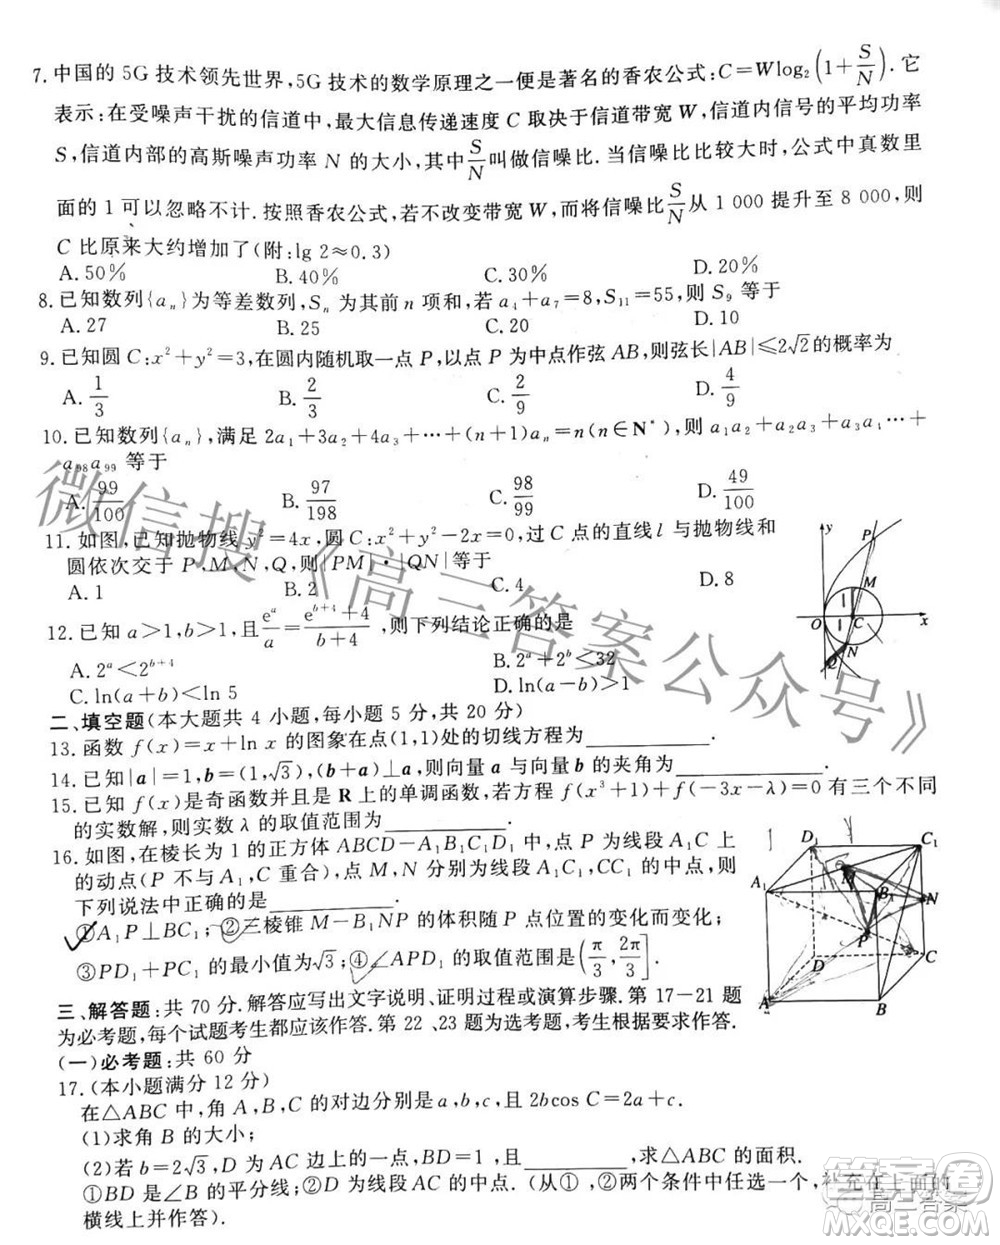 7.中国的 5G 技术领先世界,5G 技术的数学原理之一便是著名的香农公式:C=Wlog₂(1+S/N).它
表示:在受噪声干扰的信道中,最大信息传递速度 C 取决于信道带宽 W,信道内信号的平均功率
S,信道内部的高斯噪声功率 N 的大小,其中S/N叫做信噪比.当信噪比比较大时,公式中真数里
面的 1 可以忽略不计.按照香农公式,若不改变带宽 W,而将信噪比S/N从 1 000 提升至 8 000,则
C 比原来大约增加了(附:lg 2≈0.3)
A.50% B.40% C.30% D.20%
8.已知数列{aₙ}为等差数列,Sₙ为其前 n 项和,若 a₄+a₇=8,S₁₁=55,则 S₉ 等于
A.27 B.25 C.20 D.10
9.已知圆 C:x²+y²=3,在圆内随机取一点 P,以点 P 为中点作弦 AB,则弦长|AB|≤2√2的概率为
A.1/3 B.2/3 C.2/9 D.4/9
10.已知数列{aₙ},满足 2a₁+3a₂+4a₃+⋯+(n+1)aₙ=n(n∈N*),则 a₁a₂+a₂a₃+a₃a₄⋯+
a₉₈a₉₉ 等于
A.99/100 B.97/198 C.98/99 D.49/100
11.如图,已知抛物线 y²=4x,圆 C:x²+y²-2x=0,过 C 点的直线 l 与抛物线和
圆依次交于 P,M,N,Q,则|PM|·|QN|等于
A.1 B.2 C.4 D.8
y P M O C x N Q
12.已知 a>1,b>1,且eᵃ/a=(eᵇ⁺⁴+4)/(b+4),则下列结论正确的是
A.2ᵃ<2ᵇ⁺⁴ B.2ᵃ+2ᵇ<32
C.ln(a+b)<ln 5 D.
二、填空题(本大题共 4 小题,每小题 5 分,共 20 分)
13.函数 f(x)=x+ln x 的图象在点(1,1)处的切线方程为________.
14.已知|a|=1,b=(1,√3),(b+a)⊥a,则向量 a 与向量 b 的夹角为________.
15.已知 f(x)是奇函数并且是 R 上的单调函数,若方程 f(x³+1)+f(-3x-λ)=0 有三个不同
的实数解,则实数 λ 的取值范围为________.
16.如图,在棱长为 1 的正方体 ABCD-A₁B₁C₁D₁ 中,点 P 为线段 A₁C 上
的动点(P 不与 A₁,C 重合),点 M,N 分别为线段 A₁C₁,CC₁ 的中点,则
下列说法中正确的是________.
①A₁P⊥BC₁;②三棱锥 M-B₁NP 的体积随 P 点位置的变化而变化;
③PD₁+PC₁ 的最小值为√3;④∠APD₁ 的取值范围是(π/3,2π/3].
D₁ C₁ A₁ B₁ N P D C A B
三、解答题:共 70 分.解答应写出文字说明、证明过程或演算步骤.第 17-21 题
为必考题,每个试题考生都应该作答.第 22、23题为选考题,考生根据要求作答.
(一)必考题:共 60 分
17.(本小题满分 12 分)
在△ABC 中,角 A,B,C 的对边分别是a,b,c,且 2bcos C=2a+c.
(1)求角 B 的大小;
(2)若 b=2√3,D 为 AC 边上的一点,BD=1,且________,求△ABC 的面积.
①BD 是∠B 的平分线;②D 为线段 AC 的中点.(从①,②两个条件中任选一个,补充在上面的
横线上并作答).
微信搜《高三答案公众号》
答案圈
高三答案
MXQE.COM